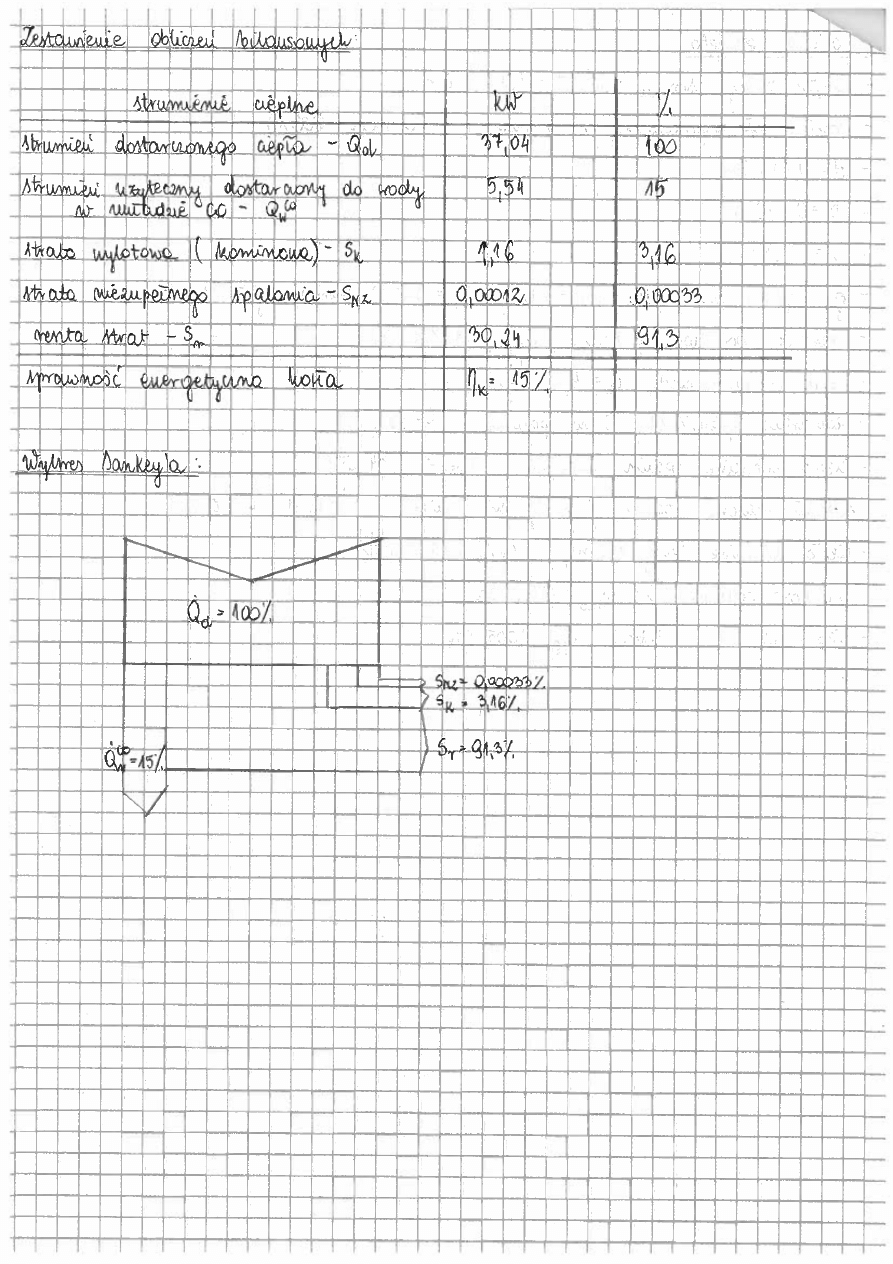 Zestawienie obliczeń bilansowych:
strumienie cieplne kW %
strumień dostarczonego ciepła - Qd 37,04 100
strumień użyteczny dostarczony do wody 5,54 15
w układzie CO - Qw^co
strata wylotowa (kominowa) - Sk 1,16 3,16
strata niezupełnego spalania - Snz 0,00012 0,00033
reszta strat - Sr 30,24 91,3
sprawność energetyczna kotła ηk = 15%
Wykres Sankey'a:
Q̇d = 100%
Snz = 0,00033%
Sk = 3,16%
Sr = 91,3%
Q̇w^co = 15%